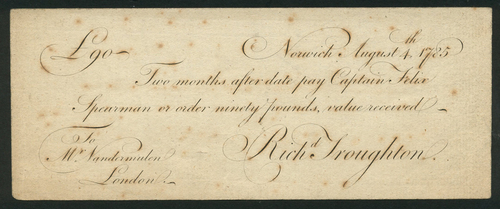 £90 Norwich August 4th 1785
Two months after date pay Captain Felix
Spearman or order ninety pounds, value received
To
Mr Vandermulen Richd Troughton
London